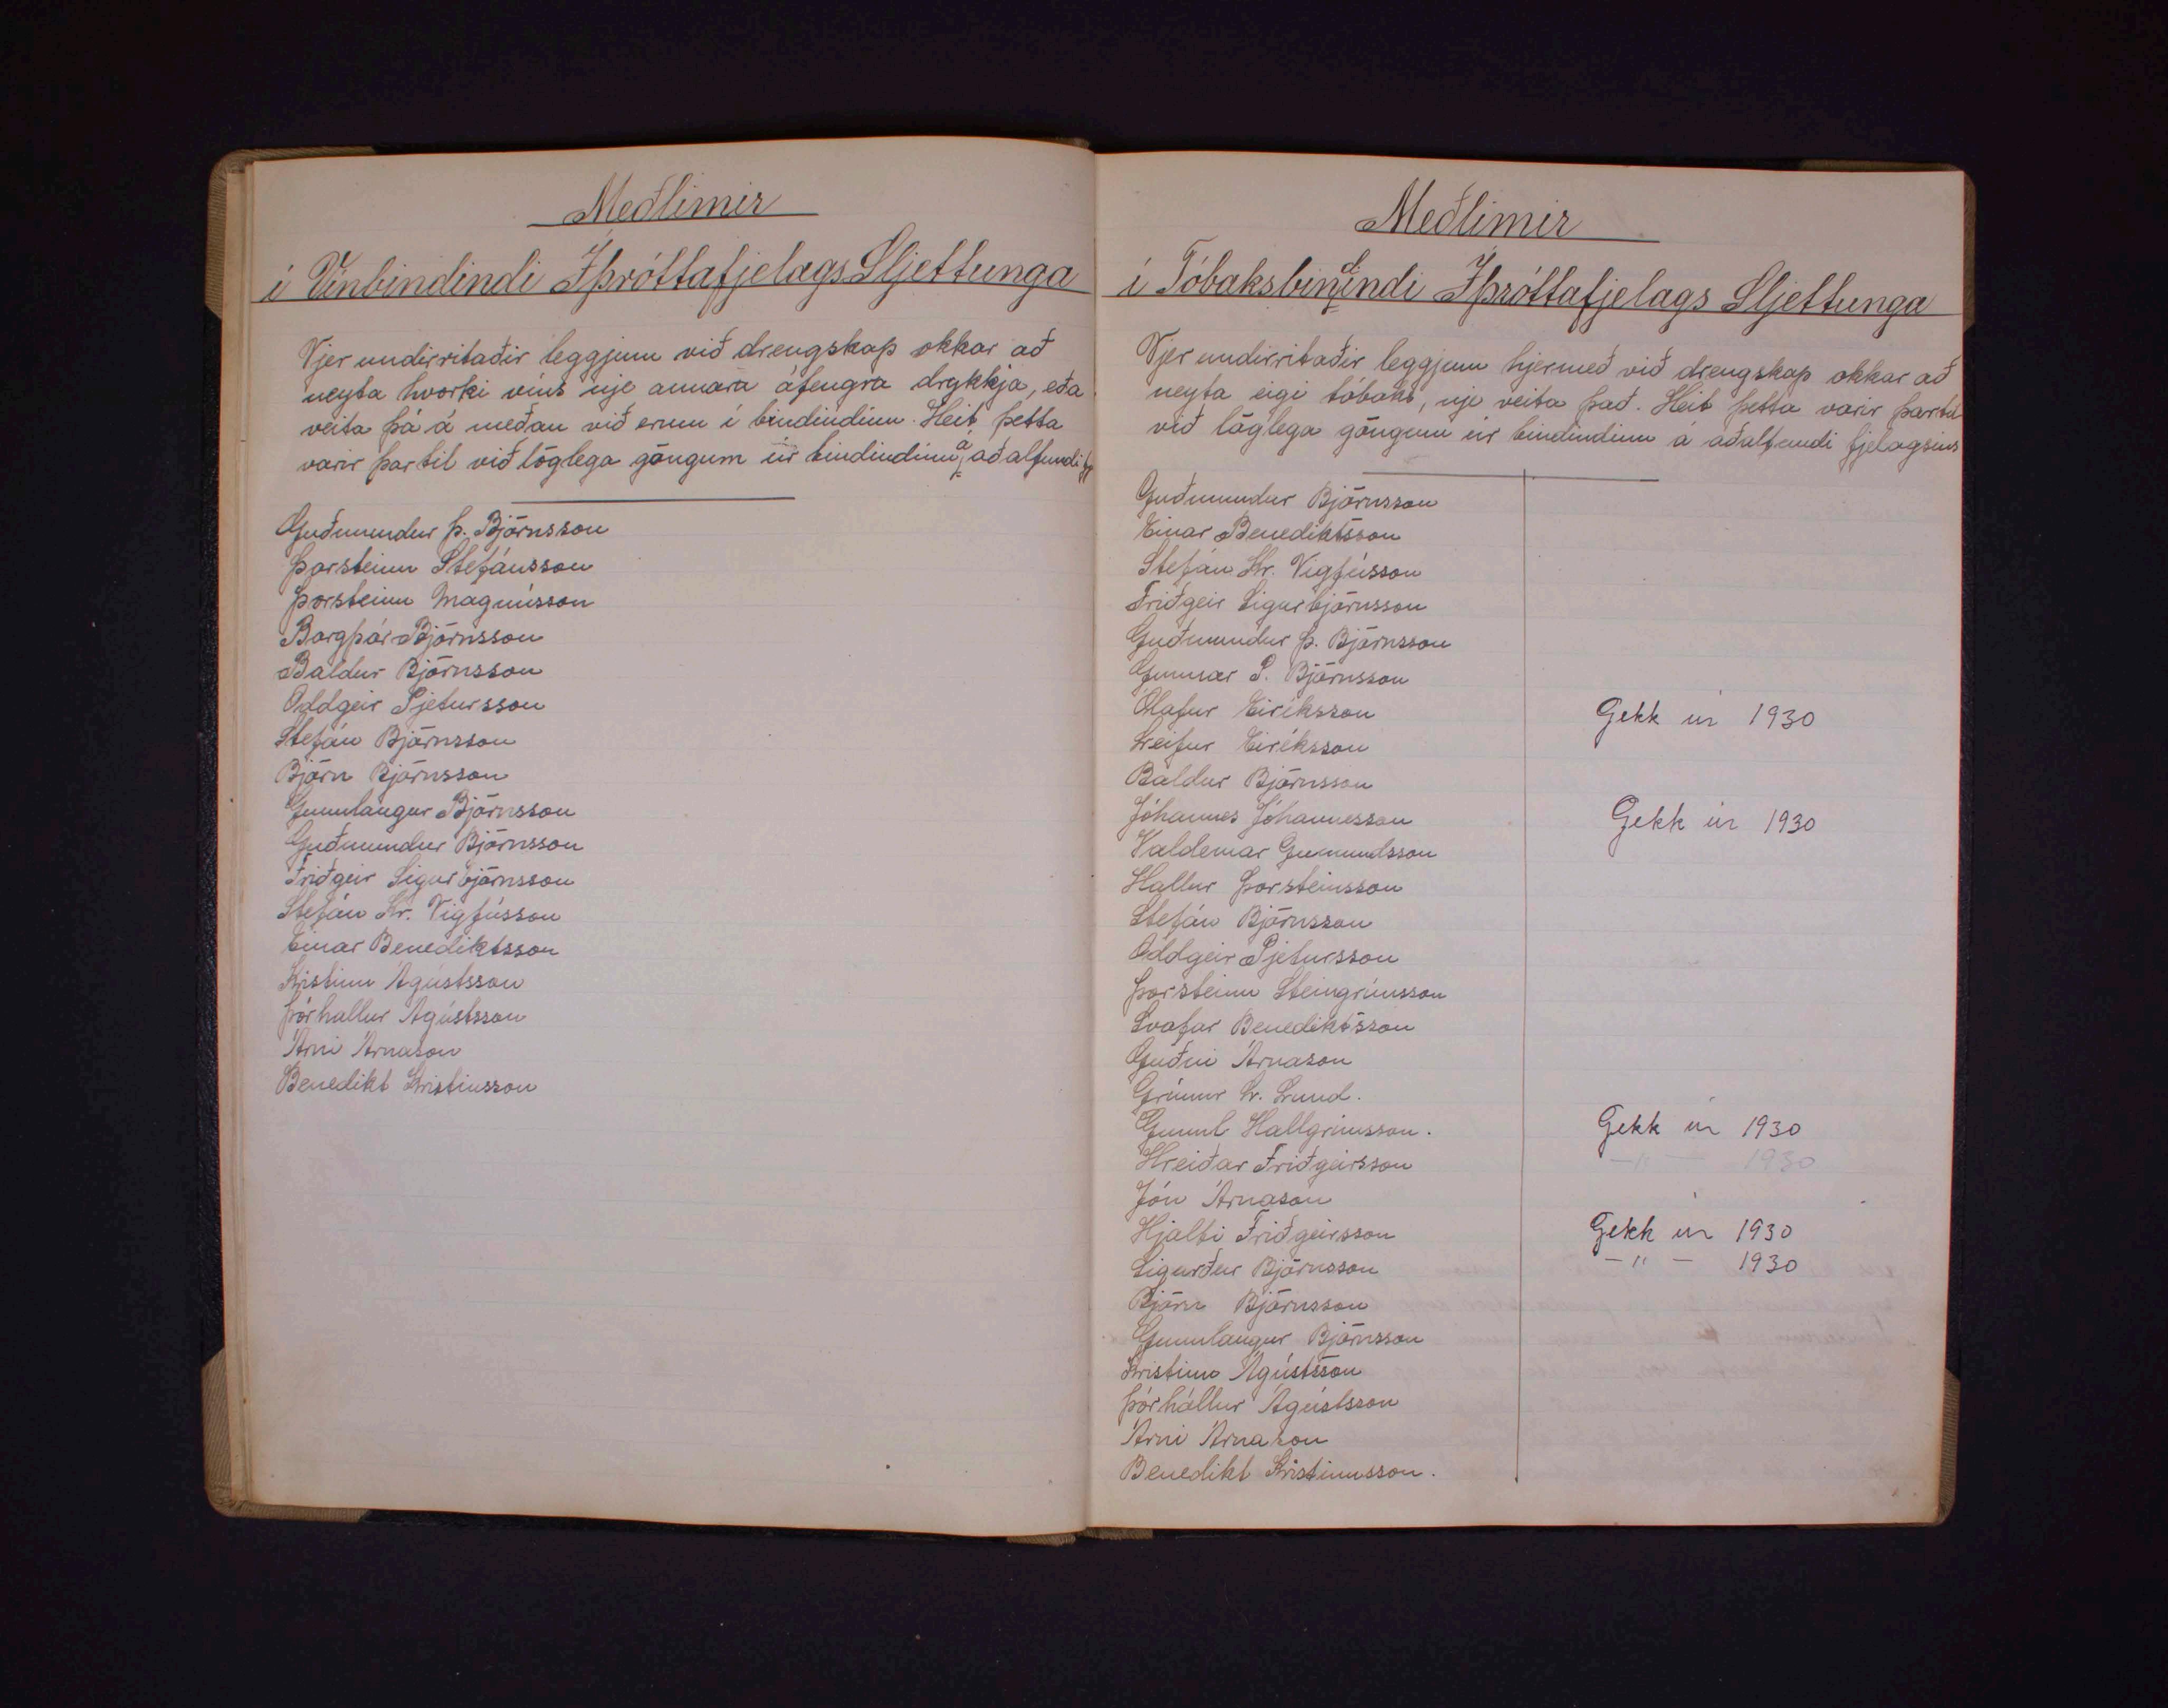 Meðlimir
í Vínbindindi Íþróttafjelags Sljettunga
Vjer undirritaðir leggjum við drengskap okkar að
neyta hvorki víns nje annara áfengra drykkja, eða
veita þá á meðan við erum í bindindinu. Heit þetta
varir þar til við löglega göngum úr bindindinu á aðalfundi
Guðmundur Þ. Björnsson
Þorsteinn Stefánsson
Þorsteinn Magnússon
Borgþór Björnsson
Baldur Björnsson
Oddgeir Pjetursson
Stefán Björnsson
Björn Björnsson
Gunnlaugur Björnsson
Guðmundur Björnsson
Friðgeir Sigurbjörnsson
Stefán Kr. Vigfússon
Einar Benediktsson
Kristinn Ágústsson
Þórhallur Ágústsson
Árni Árnason
Benedikt Kristinsson
Meðlimir
í Tóbaksbindindi Íþróttafjelags Sljettunga
Vjer undirritaðir leggjum hjermeð við drengskap okkar að
neyta eigi tóbaks, nje veita það. Heit þetta varir þartil
við löglega göngum úr bindindinu á aðalfundi fjelagsins
Guðmundur Björnsson
Einar Benediktsson
Stefán Kr. Vigfússon
Friðgeir Sigurbjörnsson
Guðmundur Þ. Björnsson
Gunnar P. Björnsson
Ólafur Eiríksson Gekk úr 1930
Leifur Eiríksson
Baldur Björnsson
Jóhannes Jóhannesson Gekk úr 1930
Valdemar Guðmundsson
Hallur Þorsteinsson
Stefán Björnsson
Oddgeir Pjetursson
Þorsteinn Steingrímsson
Svafar Benediktsson
Guðni Árnason
Grímur Lund.
Gunnl Hallgrímsson. Gekk úr 1930
Hreiðar Friðgeirsson —"— 1930
Jón Árnason
Hjalti Friðgeirsson Gekk úr 1930
Sigurður Björnsson —"— 1930
Björn Björnsson
Gunnlaugur Björnsson
Kristinn Ágústsson
Þórhallur Ágústsson
Árni Árnason
Benedikt Kristinnsson.